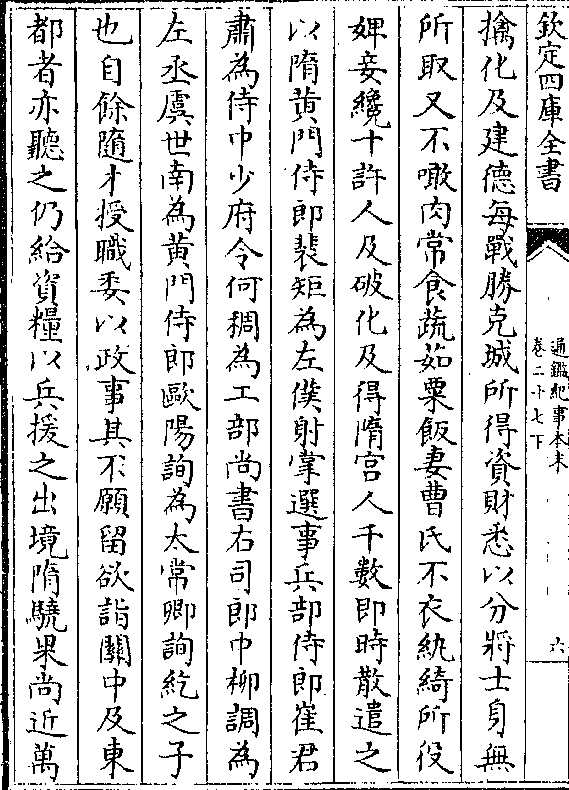 欽定四庫全書
通鑑紀事本末
卷二十七下
六
擒化及建德每戰勝克城所得資財悉以分將士身無
所取又不噉肉常食蔬茹粟飯妻曹氏不衣紈綺所役
婢妾纔十許人及破化及得隋宫人千數即時散遣之
以隋黄門侍郎裴矩為左僕射掌選事兵部侍郎崔君
肅為侍中少府令何稠為工部尚書右司郎中柳調為
左丞虞世南為黄門侍郎歐陽詢為太常卿詢紇之子
也自餘隨才授職委以政事其不願留欲詣關中及東
都者亦聽之仍給資糧以兵援之出境隋驍果尚近萬